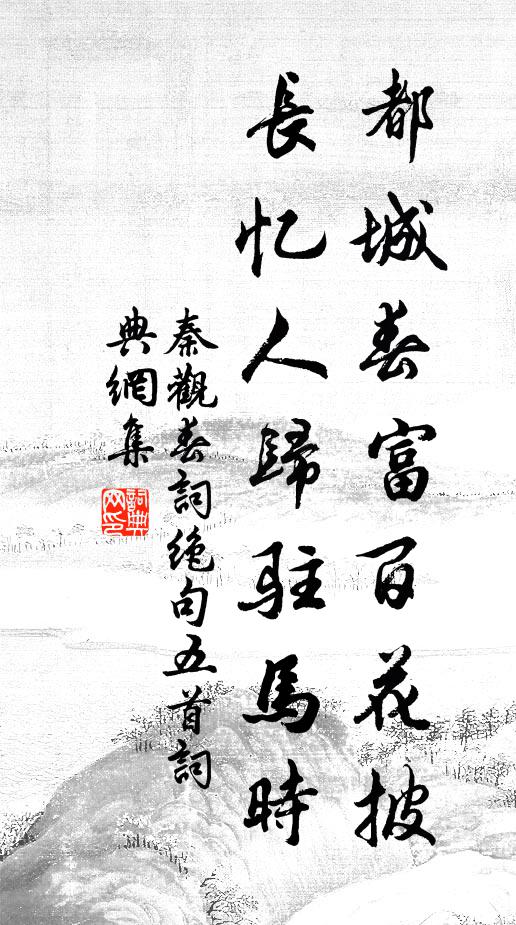 都城春富百花披
長忆人歸駐馬時
秦觀春詞絶句五首詞
典網集
詞典網印